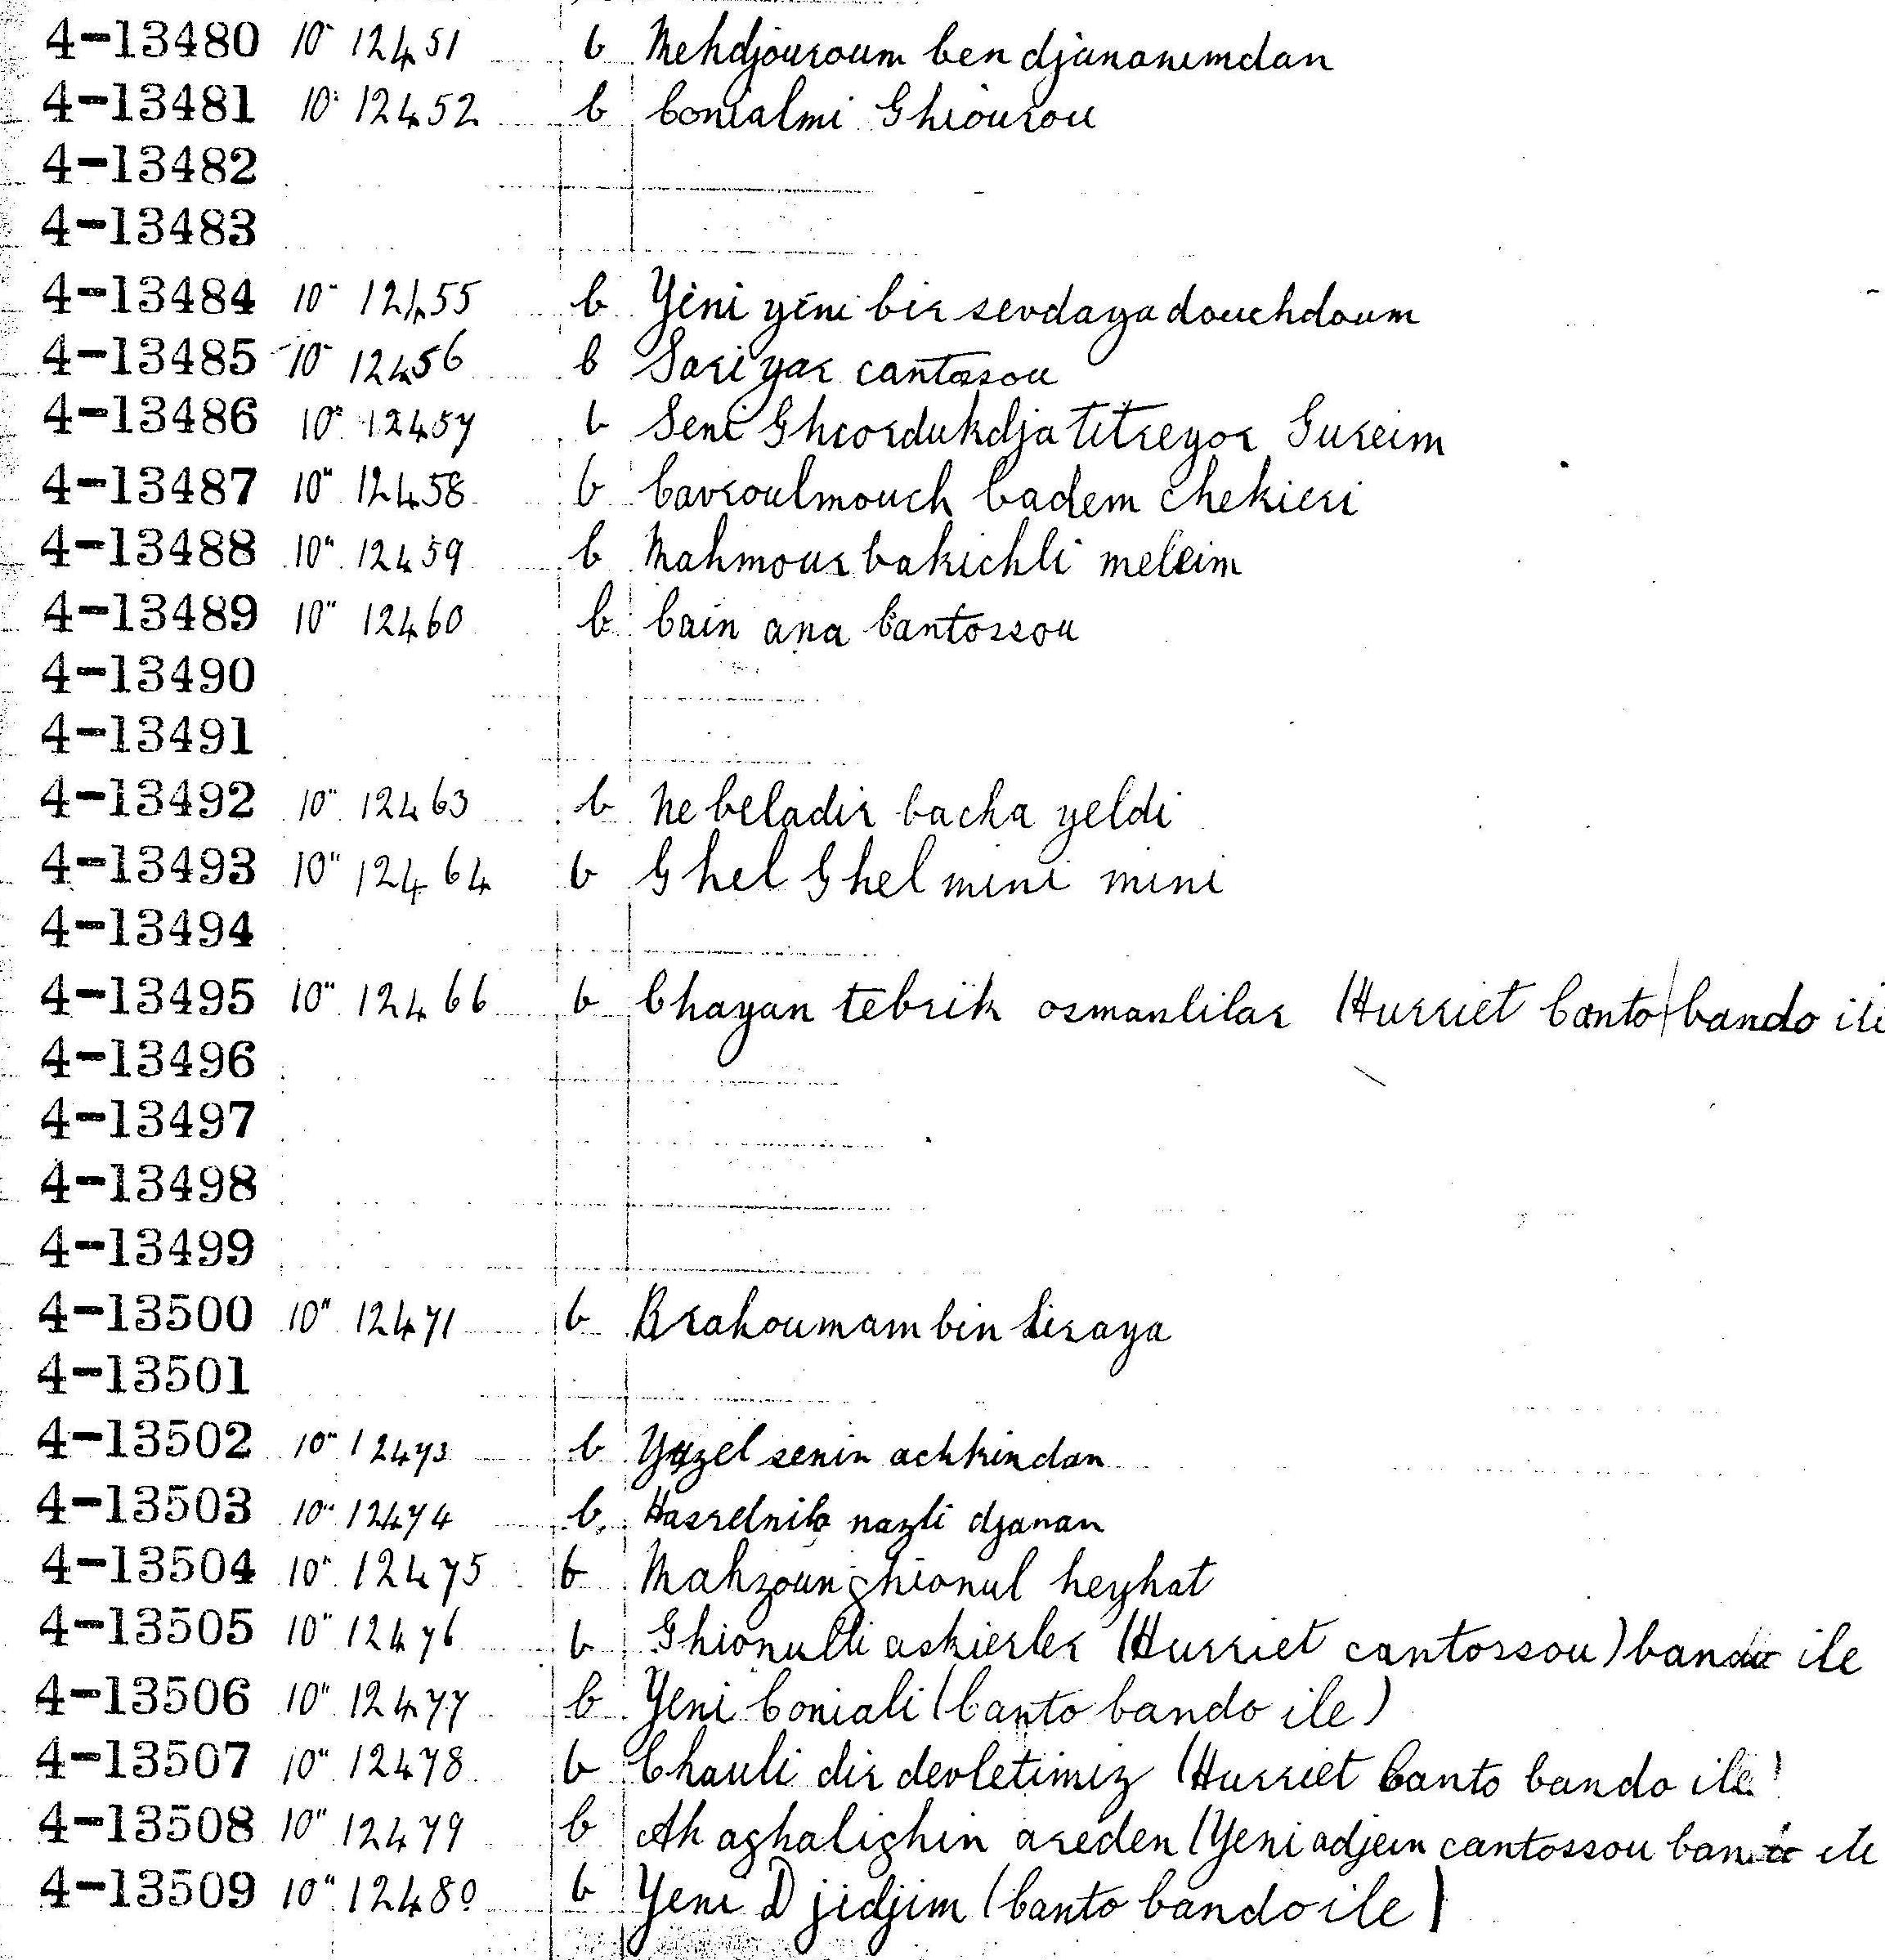 4-13480 10" 12451 b Mehdjouroum ben djananumdan
4-13481 10" 12452 b Conialmi Ghiourou
4-13482
4-13483
4-13484 10" 12455 b Yeni yeni bir sevdaya douchdoum
4-13485 10" 12456 b Sari yar cantossou
4-13486 10" 12457 b Seni Ghiordukdja titreyor Gureim
4-13487 10" 12458 b Cavroulmouch badem chekieri
4-13488 10" 12459 b Mahmour bakichli meleim
4-13489 10" 12460 b Cain ana Cantossou
4-13490
4-13491
4-13492 10" 12463 b Ne beladir bacha geldi
4-13493 10" 12464 b Ghel Ghel mini mini
4-13494
4-13495 10" 12466 b Chayan tebrik osmanlilar (Hurriet Canto) bando ile
4-13496
4-13497
4-13498
4-13499
4-13500 10" 12471 b Brahoumam bin liraya
4-13501
4-13502 10" 12473 b Guzel senin achkindan
4-13503 10" 12474 b nazli djanan
4-13504 10" 12475 b Mahzoun ghionul heyhat
4-13505 10" 12476 b Ghionulli askierler (Hurriet cantossou) bando ile
4-13506 10" 12477 b Yeni Coniali (Canto bando ile)
4-13507 10" 12478 b Chanli dir devletimiz (Hurriet Canto bando ile)
4-13508 10" 12479 b Ah aghalighin areden (Yeni adjem cantossou bando ile
4-13509 10" 12480 b Yeni Djidjim (Canto bando ile)